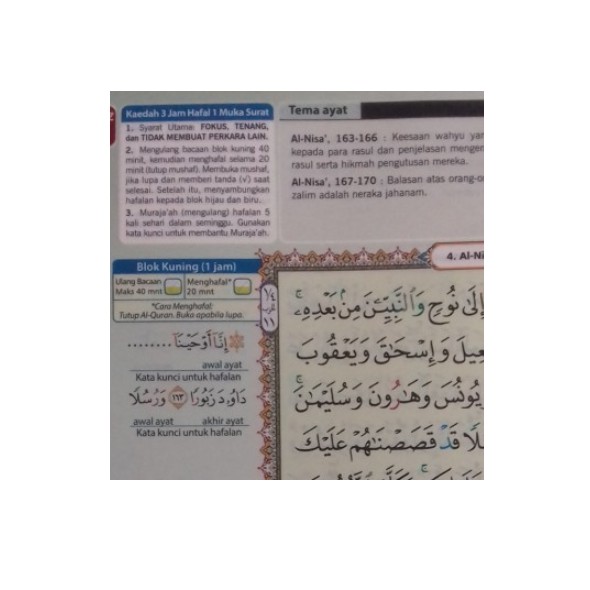 Kaedah 3 Jam Hafal 1 Muka Surat
1. Syarat Utama: FOKUS, TENANG,
dan TIDAK MEMBUAT PERKARA LAIN.
2. Mengulang bacaan blok kuning 40
minit, kemudian menghafal selama 20
minit (tutup mushaf). Membuka mushaf,
jika lupa dan memberi tanda (√) saat
selesai. Setelah itu, menyambungkan
hafalan kepada blok hijau dan biru.
3. Muraja'ah (mengulang) hafalan 5
kali sehari dalam seminggu. Gunakan
kata kunci untuk membantu Muraja'ah.
Tema ayat
Al-Nisa', 163-166 : Keesaan wahyu
kepada para rasul dan penjelasan
rasul serta hikmah pengutusan mereka.
Al-Nisa', 167-170 : Balasan atas
zalim adalah neraka jahanam.
Blok Kuning (1 jam)
Ulang Bacaan
Maks 40 mnt
Menghafal*
20 mnt
*Cara Menghafal:
Tutup Al-Quran. Buka apabila lupa.
إِنَّآ أَوْحَيْنَآ ........
awal ayat
Kata kunci untuk hafalan
دَاوُۥدَ زَبُورًا ١٦٣ وَرُسُلًا
awal ayat akhir ayat
Kata kunci untuk hafalan
١/٤
١١
4. Al-Ni
إِلَىٰ نُوحٍ وَٱلنَّبِيِّـۧنَ مِنۢ بَعْدِهِۦۚ
وَإِسْحَٰقَ وَيَعْقُوبَ
وَيُونُسَ وَهَٰرُونَ وَسُلَيْمَٰنَۚ
قَدْ قَصَصْنَٰهُمْ عَلَيْكَ